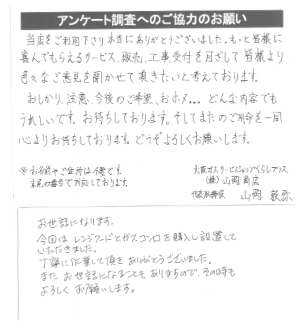 アンケート調査へのご協力のお願い
当店をご利用下さり本当にありがとうございました。もっと皆様に
喜んでもらえるサービス、販売、工事受付を目ざして皆様より
色々なご意見を聞かせて頂きたいと考えております。
おしかり、注意、今後のご希望、おホメ…どんな内容でも
うれしいです。お待ちしております。そしてまたのご用命を一同
心よりお待ちしております。どうぞよろしくお願いします。
※お名前やご住所は不要です。
大阪ガスサービスショップ
(株)山岡商店
山岡
お世話になります。
今回はレンジフードとガスコンロを購入し設置して
いただきました。
丁寧に作業して頂きありがとうございました。
またお世話になることもありますので、その時も
よろしくお願いします。